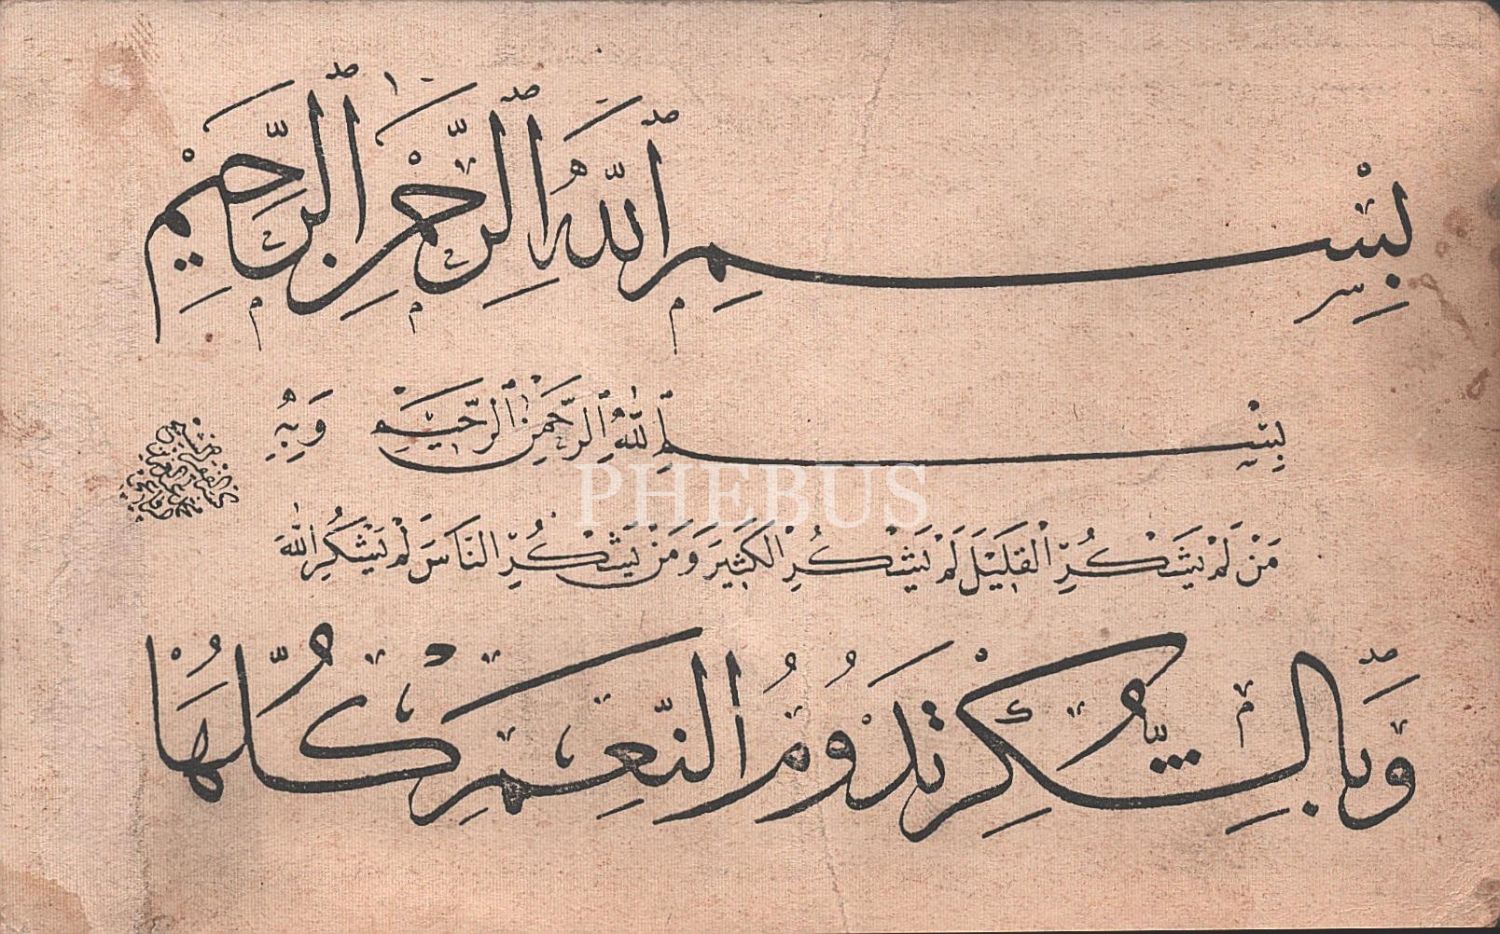 بِسْمِ ٱللَّهِ ٱلرَّحْمٰنِ ٱلرَّحِيمِ
بِسْمِ ٱللّٰهِ ٱلرَّحْمٰنِ ٱلرَّحِيْمِ وَبِهِ
PHEBUS
مَنْ لَمْ يَشْكُرِ الْقَلِيْلَ لَمْ يَشْكُرِ الْكَثِيْرَ وَمَنْ يَشْكُرِ النَّاسَ لَمْ يَشْكُرِ اللّٰهَ
وَبِالشُّكْرِ تَدُومُ النِّعَمُ كُلُّهَا